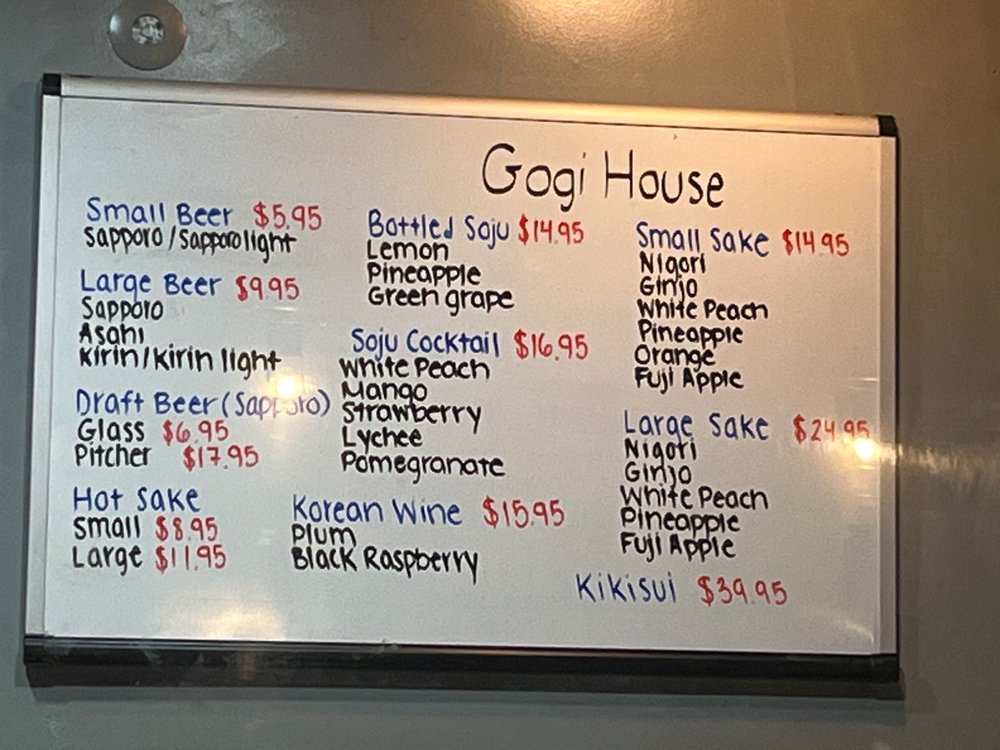 Gogi House
Small Beer $5.95
Sapporo/Sapporo light
Large Beer $9.95
Sapporo
Asahi
Kirin/Kirin light
Draft Beer (Sapporo)
Glass $6.95
Pitcher $17.95
Hot Sake
Small $8.95
Large $11.95
Bottled Soju $14.95
Lemon
Pineapple
Green grape
Soju Cocktail $16.95
White Peach
Mango
Strawberry
Lychee
Pomegranate
Korean Wine $15.95
Plum
Black Raspberry
Small Sake $14.95
Nigori
Ginjo
White Peach
Pineapple
Orange
Fuji Apple
Large Sake $24.95
Nigori
Ginjo
White Peach
Pineapple
Fuji Apple
Kikisui $39.95